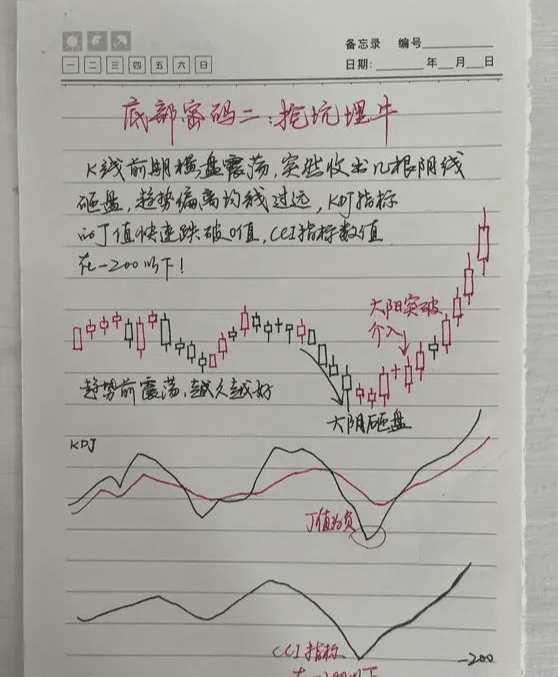 备忘录 编号
一 二 三 四 五 六 日
日期: 年 月 日
底部密码二:挖坑埋牛
K线前期横盘震荡,突然收出几根阴线
砸盘,趋势偏离均线过远,KDJ指标
的J值快速跌破0值,CCI指标数值
在-200以下!
大阳突破
介入
趋势前震荡,越久越好
大阴砸盘
KDJ
J值为负
CCI指标
-200
在-200以下